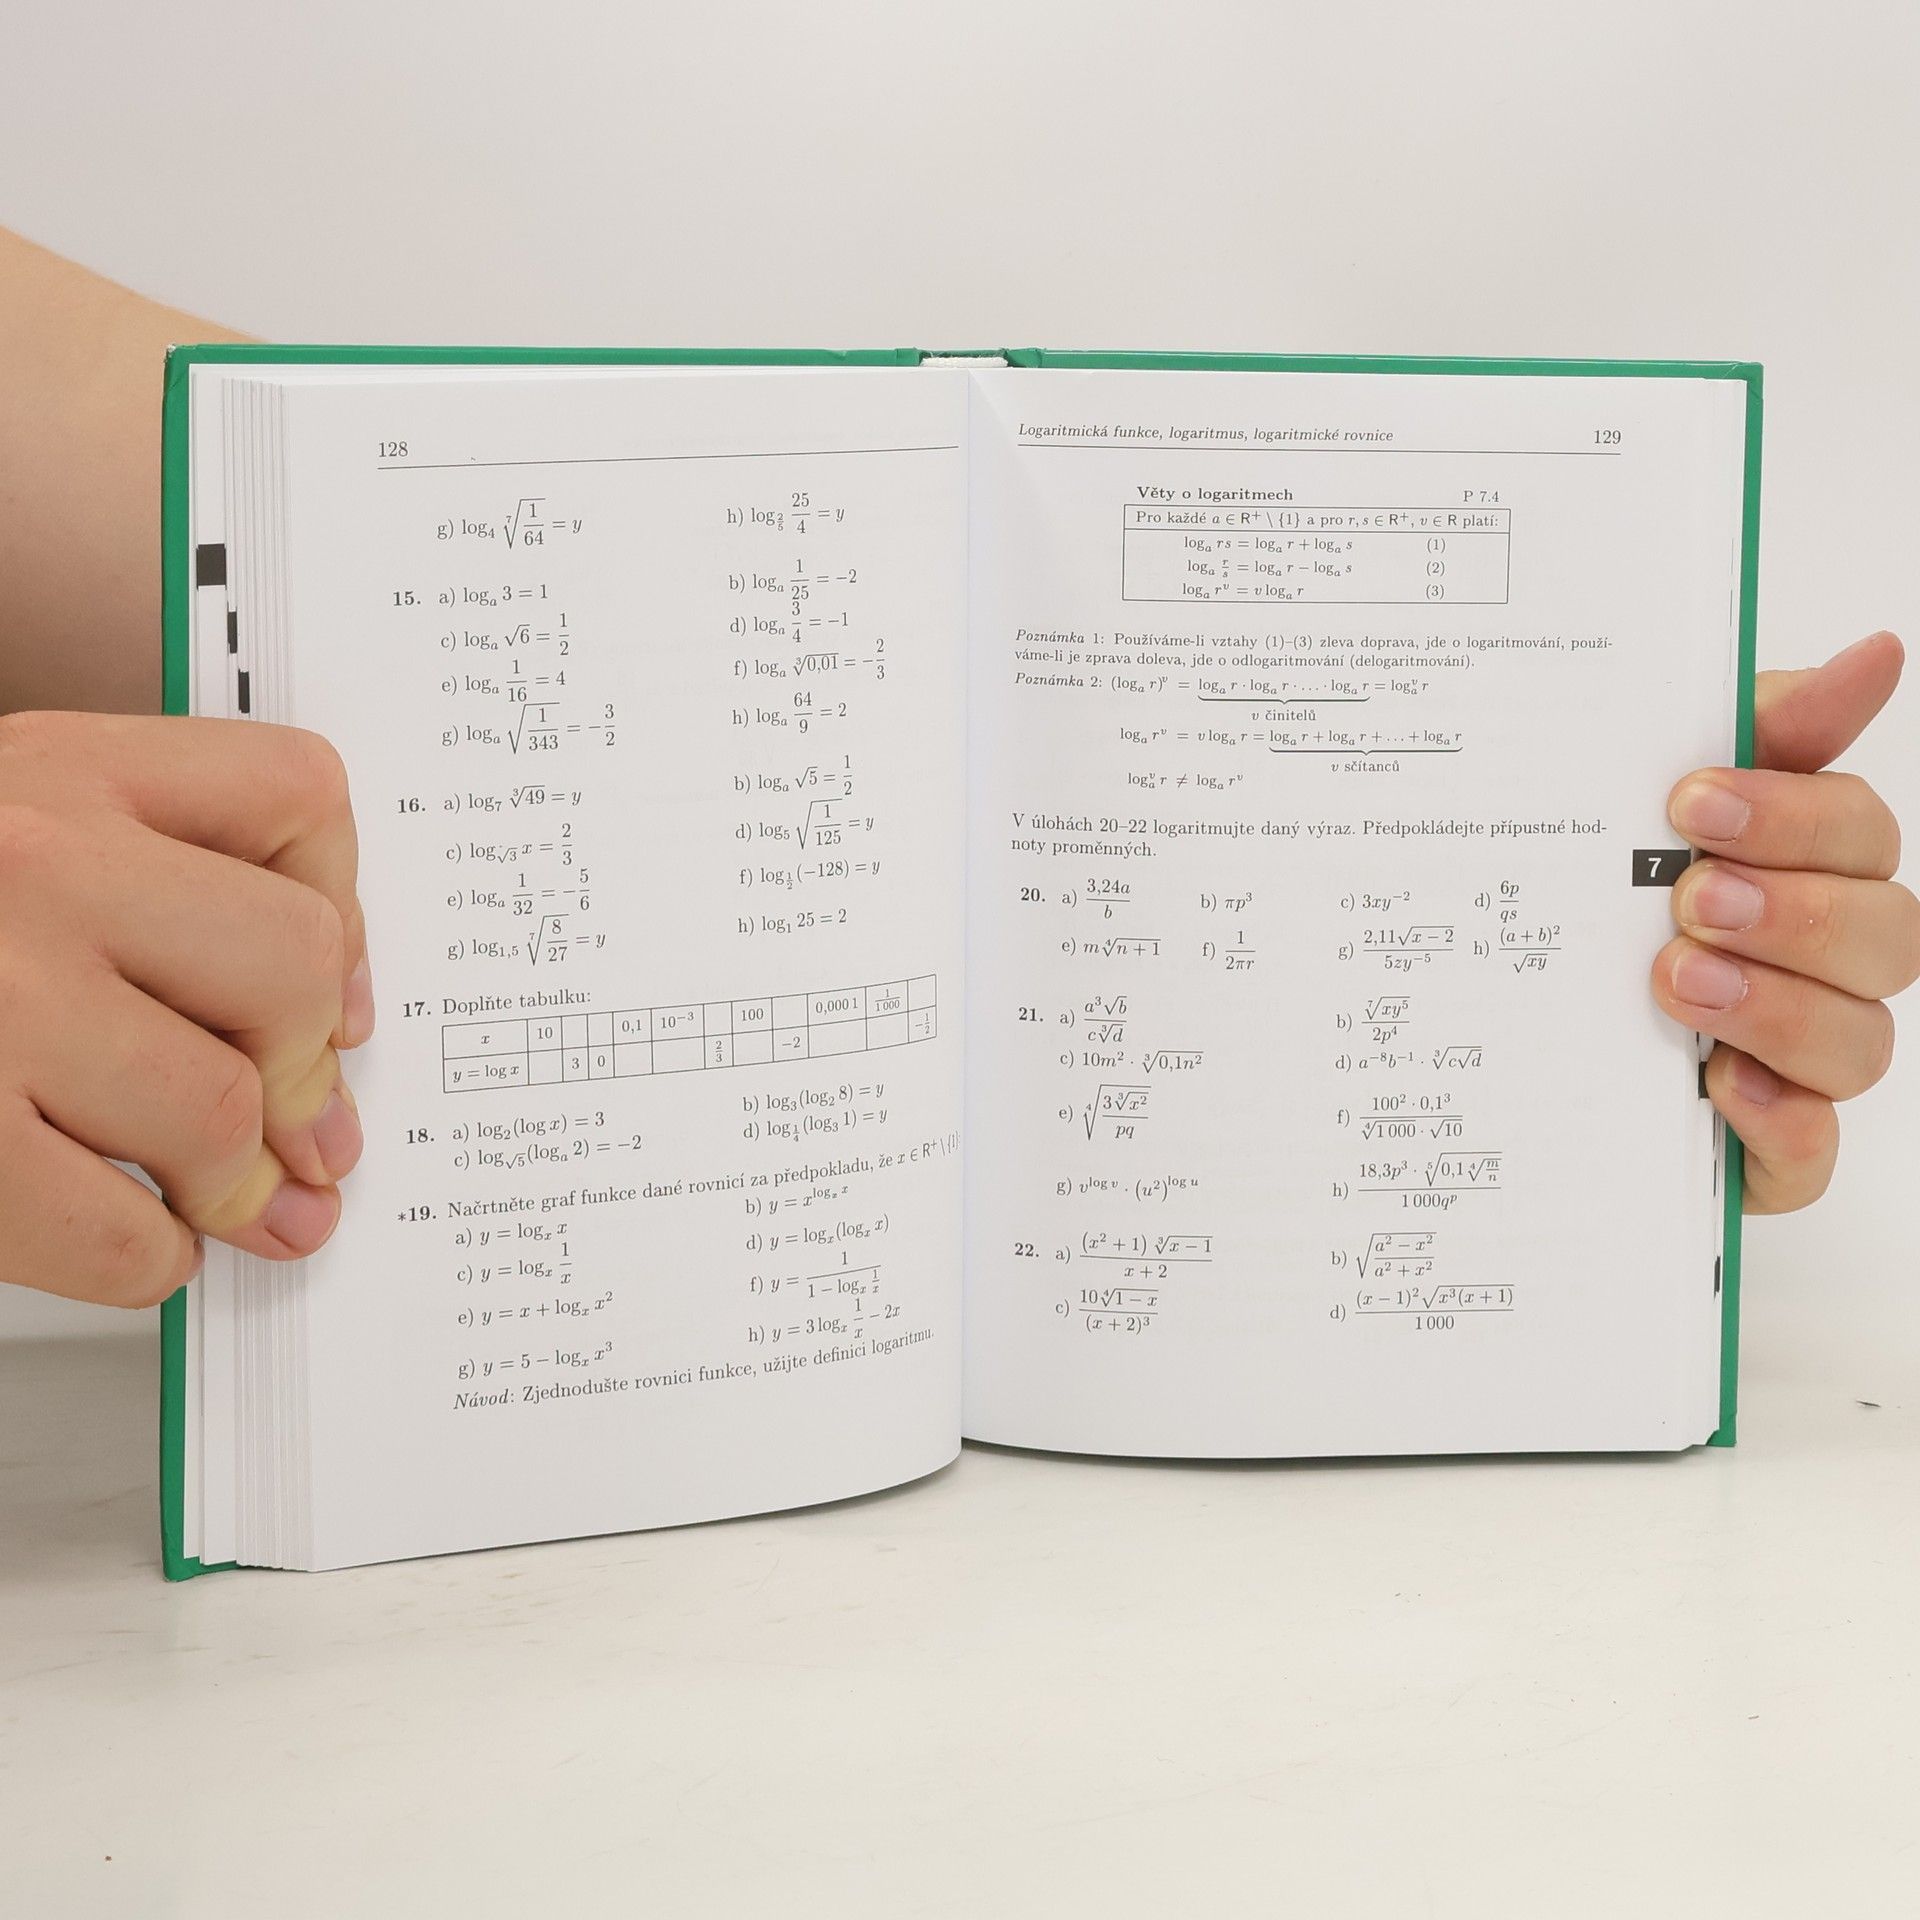 128
g) log₄ ⁷√(1/64) = y h) log_(2/5) 25/4 = y
15. a) logₐ 3 = 1 b) logₐ 1/25 = −2
c) logₐ √6 = 1/2 d) logₐ 3/4 = −1
e) logₐ 1/16 = 4 f) logₐ ³√(0,01) = −2/3
g) logₐ √(1/343) = −3/2 h) logₐ 64/9 = 2
16. a) log₇ ³√49 = y b) logₐ √5 = 1/2
c) log_(√3) x = 2/3 d) log₅ √(1/125) = y
e) logₐ 1/32 = −5/6 f) log_(1/2) (−128) = y
g) log₁,₅ ⁷√(8/27) = y h) log₁ 25 = 2
17. Doplňte tabulku:
x 10 0,1 10⁻³ 100 0,000 1 1/1 000
y = log x 3 0 2/3 −2 −1/2
18. a) log₂(log x) = 3 b) log₃(log₂ 8) = y
c) log_(√5)(logₐ 2) = −2 d) log_(1/4)(log₃ 1) = y
*19. Načrtněte graf funkce dané rovnicí za předpokladu, že x ∈ R⁺ \ {1}:
a) y = logₓ x b) y = x^(logₓ x)
c) y = logₓ 1/x d) y = logₓ(logₓ x)
e) y = x + logₓ x² f) y = 1/(1 − logₓ 1/x)
g) y = 5 − logₓ x³ h) y = 3 logₓ 1/x − 2x
Návod: Zjednodušte rovnici funkce, užijte definici logaritmu.
Logaritmická funkce, logaritmus, logaritmické rovnice 129
Věty o logaritmech P 7.4
Pro každé a ∈ R⁺ \ {1} a pro r, s ∈ R⁺, v ∈ R platí:
logₐ rs = logₐ r + logₐ s (1)
logₐ r/s = logₐ r − logₐ s (2)
logₐ rᵛ = v logₐ r (3)
Poznámka 1: Používáme-li vztahy (1)–(3) zleva doprava, jde o logaritmování, použí-
váme-li je zprava doleva, jde o odlogaritmování (delogaritmování).
Poznámka 2: (logₐ r)ᵛ = logₐ r · logₐ r · … · logₐ r = logₐᵛ r
v činitelů
logₐ rᵛ = v logₐ r = logₐ r + logₐ r + … + logₐ r
v sčítanců
logₐᵛ r ≠ logₐ rᵛ
V úlohách 20–22 logaritmujte daný výraz. Předpokládejte přípustné hod-
noty proměnných.
7
20. a) 3,24a/b b) πp³ c) 3xy⁻² d) 6p/qs
e) m ⁴√(n + 1) f) 1/2πr g) 2,11√(x − 2)/5zy⁻⁵ h) (a + b)²/√(xy)
21. a) a³√b/c³√d b) ⁷√(xy⁵)/2p⁴
c) 10m² · ³√(0,1n²) d) a⁻⁸b⁻¹ · ³√(c√d)
e) ⁴√(3 ³√(x²)/pq) f) 100² · 0,1³/(⁴√(1 000) · √10)
g) v^(log v) · (u²)^(log u) h) 18,3p³ · ⁵√(0,1 ⁴√(m/n))/1 000qᵖ
22. a) (x² + 1) ³√(x − 1)/(x + 2) b) √((a² − x²)/(a² + x²))
c) 10 ⁴√(1 − x)/(x + 2)³ d) (x − 1)² √(x³(x + 1))/1 000